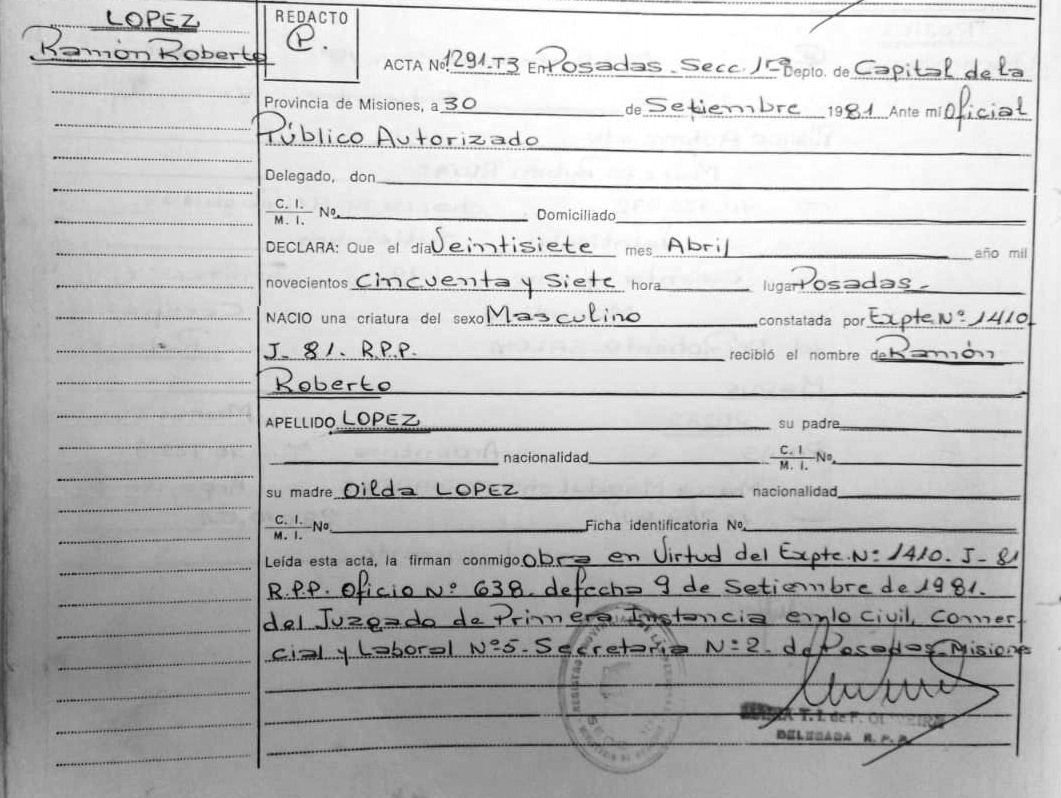 LOPEZ
Ramón Roberto
REDACTO
P.
ACTA No 1291-T3 En Posadas - Secc. 1ra Depto. de Capital de la
Provincia de Misiones, a 30 de Setiembre 1981 Ante mi Oficial
Público Autorizado
Delegado, don
C. I. / M. I. No. Domiciliado
DECLARA: Que el día Veintisiete mes Abril año mil
novecientos Cincuenta y Siete hora lugar Posadas.-
NACIO una criatura del sexo Masculino constatada por Expte Nº 1410
J- 81. R.P.P. recibió el nombre de Ramón
Roberto
APELLIDO LOPEZ su padre
nacionalidad C. I. / M. I. No.
su madre Oilda LOPEZ nacionalidad
C. I. / M. I. No. Ficha identificatoria No.
Leída esta acta, la firman conmigo obra en Virtud del Expte. Nº 1410. J- 81
R.P.P. Oficio Nº 638. de fecha 9 de Setiembre de 1981.
del Juzgado de Primera Instancia en lo Civil, Comer-
cial y Laboral Nº 5. Secretaria Nº 2. de Posadas Misiones
T. I. de F.
DELEGADA R. P. P.